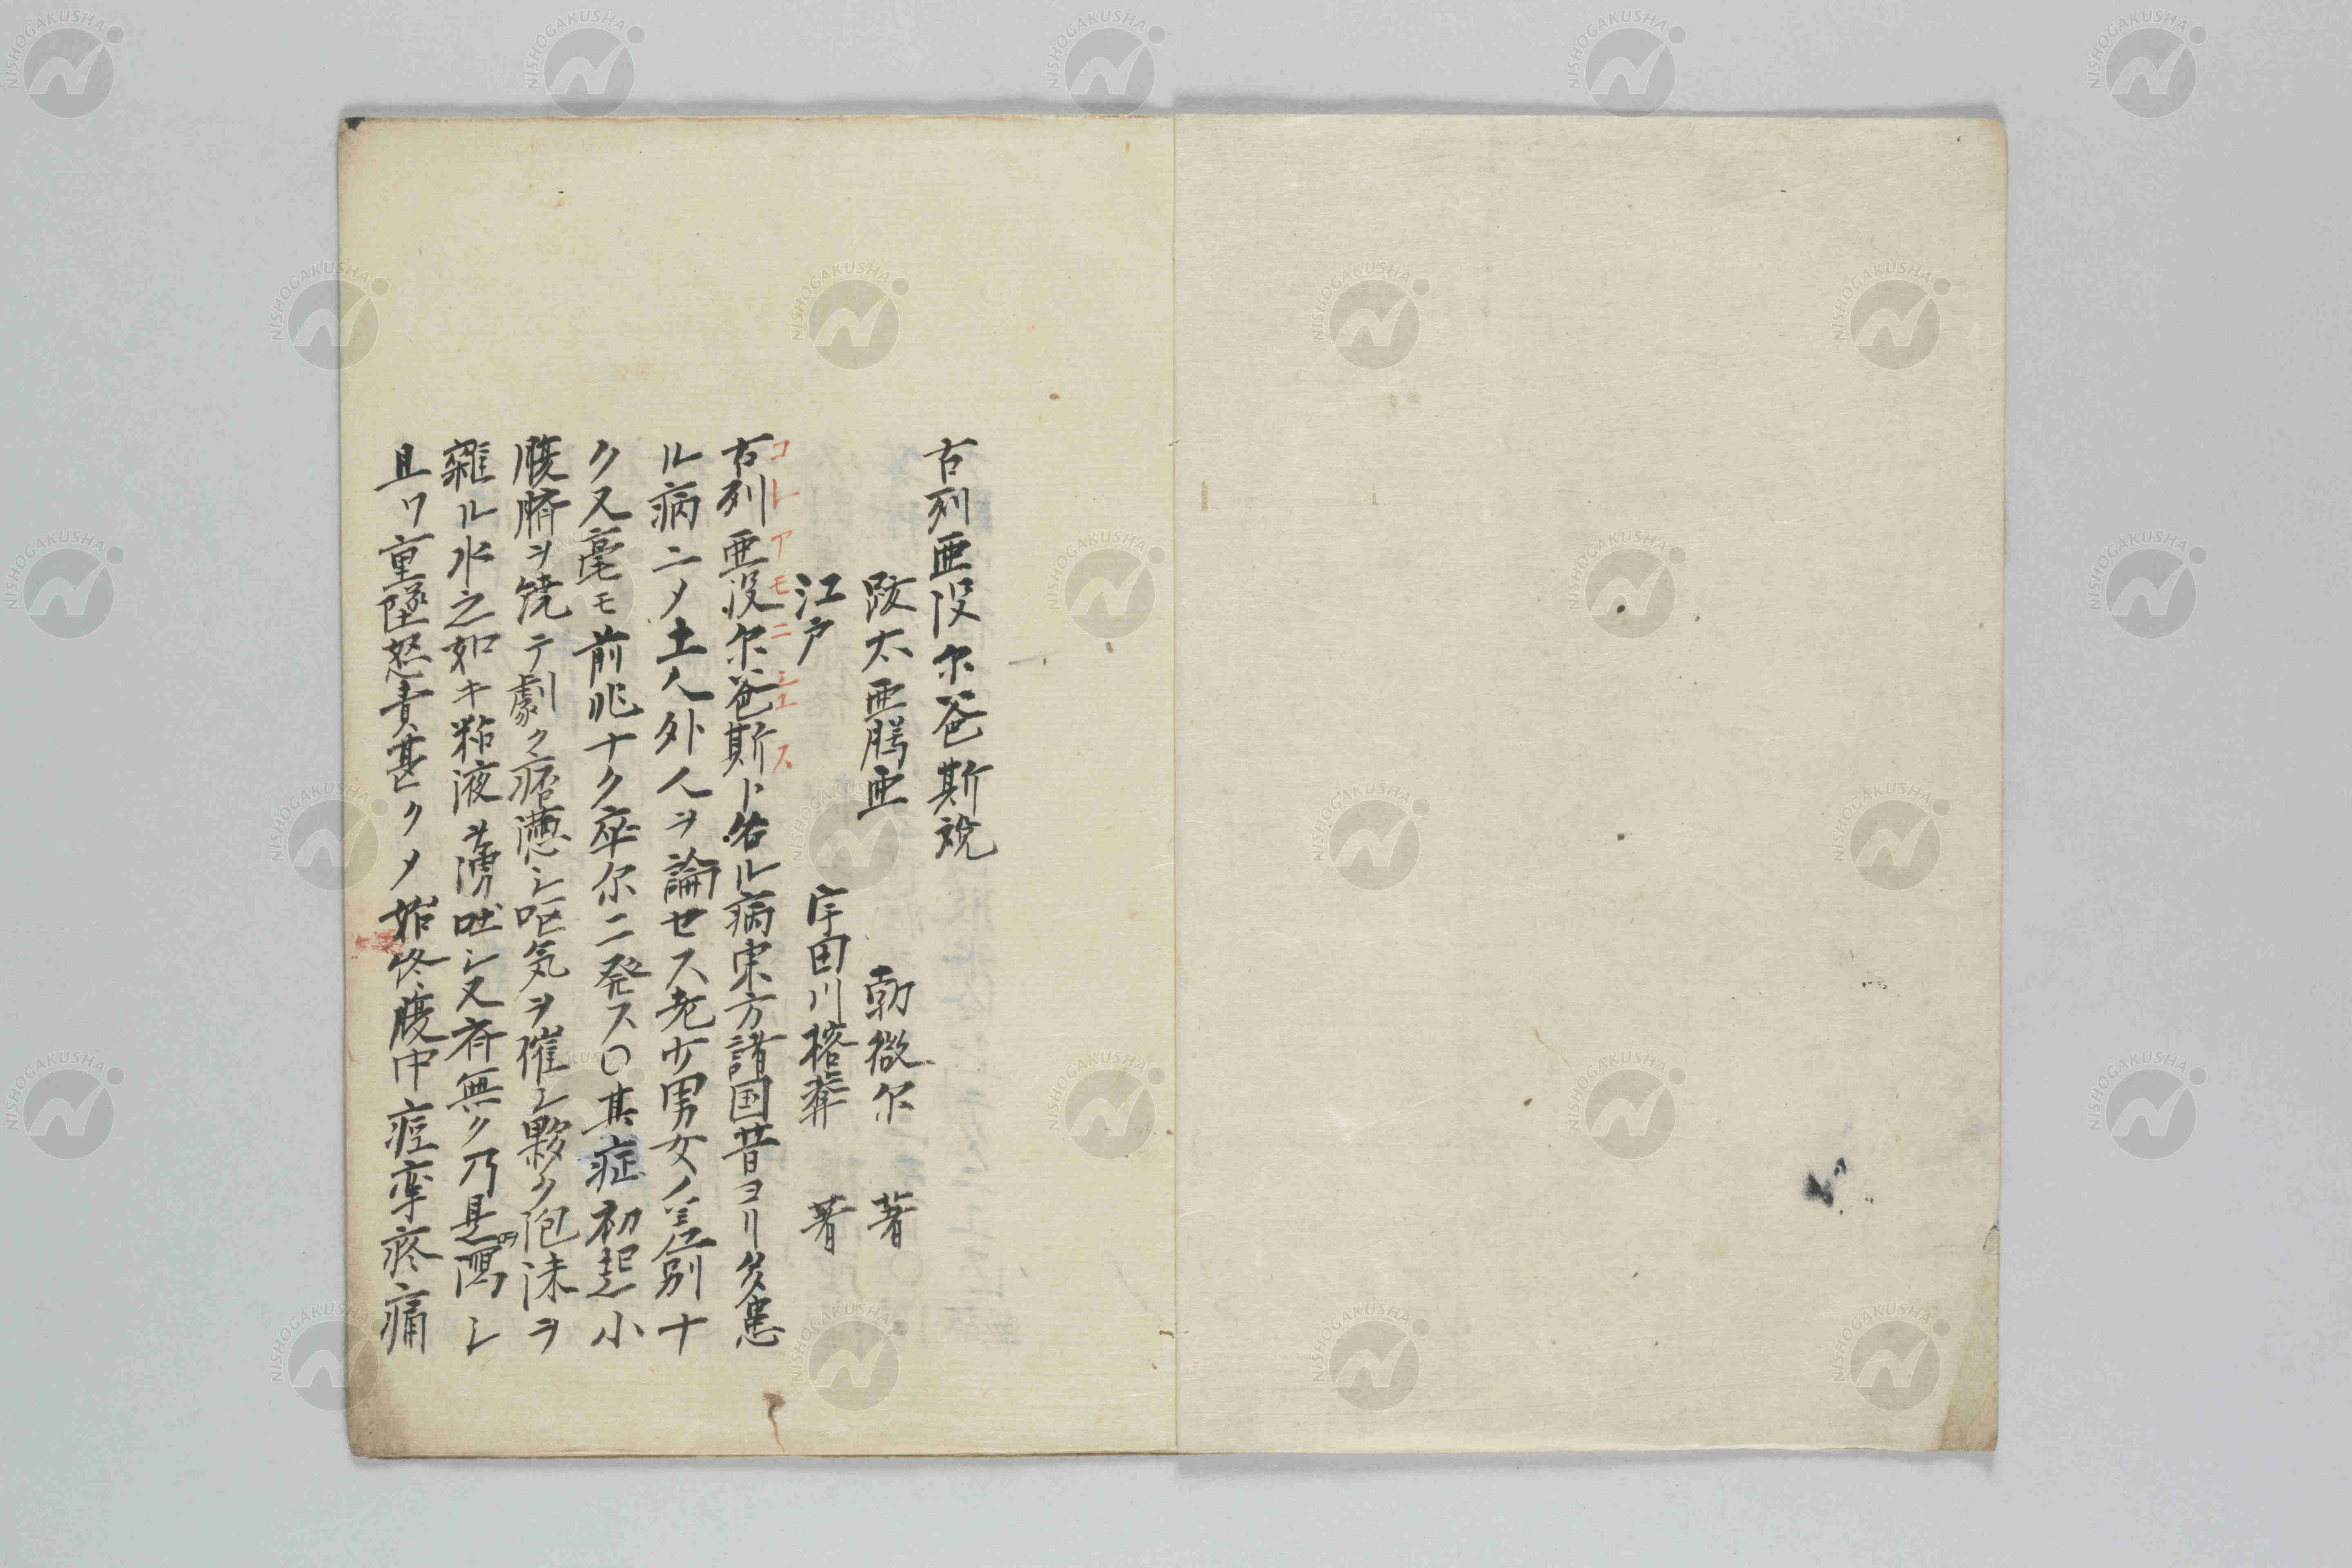 古列亜没尓爸斯説
跂太亜腾亜　勃微尓　著
江戸　宇田川榕菴　著
コレアモニシエス
古列亜没尓爸斯ト名ル病東方諸国昔ヨリ多患
ル病ニメ土人外人ヲ論セス老少男女ノ差別ナ
ク又毫モ前兆ナク卒尓ニ発ス〇其症初起小
腹臍ヲ焼テ劇ク痞懣シ呕気ヲ催シ夥ク泡沫ヲ
雜ル水之如キ粘液ヲ湧吐シ又有無ク乃是瀉シ
且ツ重墜怒責甚クメ始終腹中痙挛疼痛
NISHOGAKUSHA